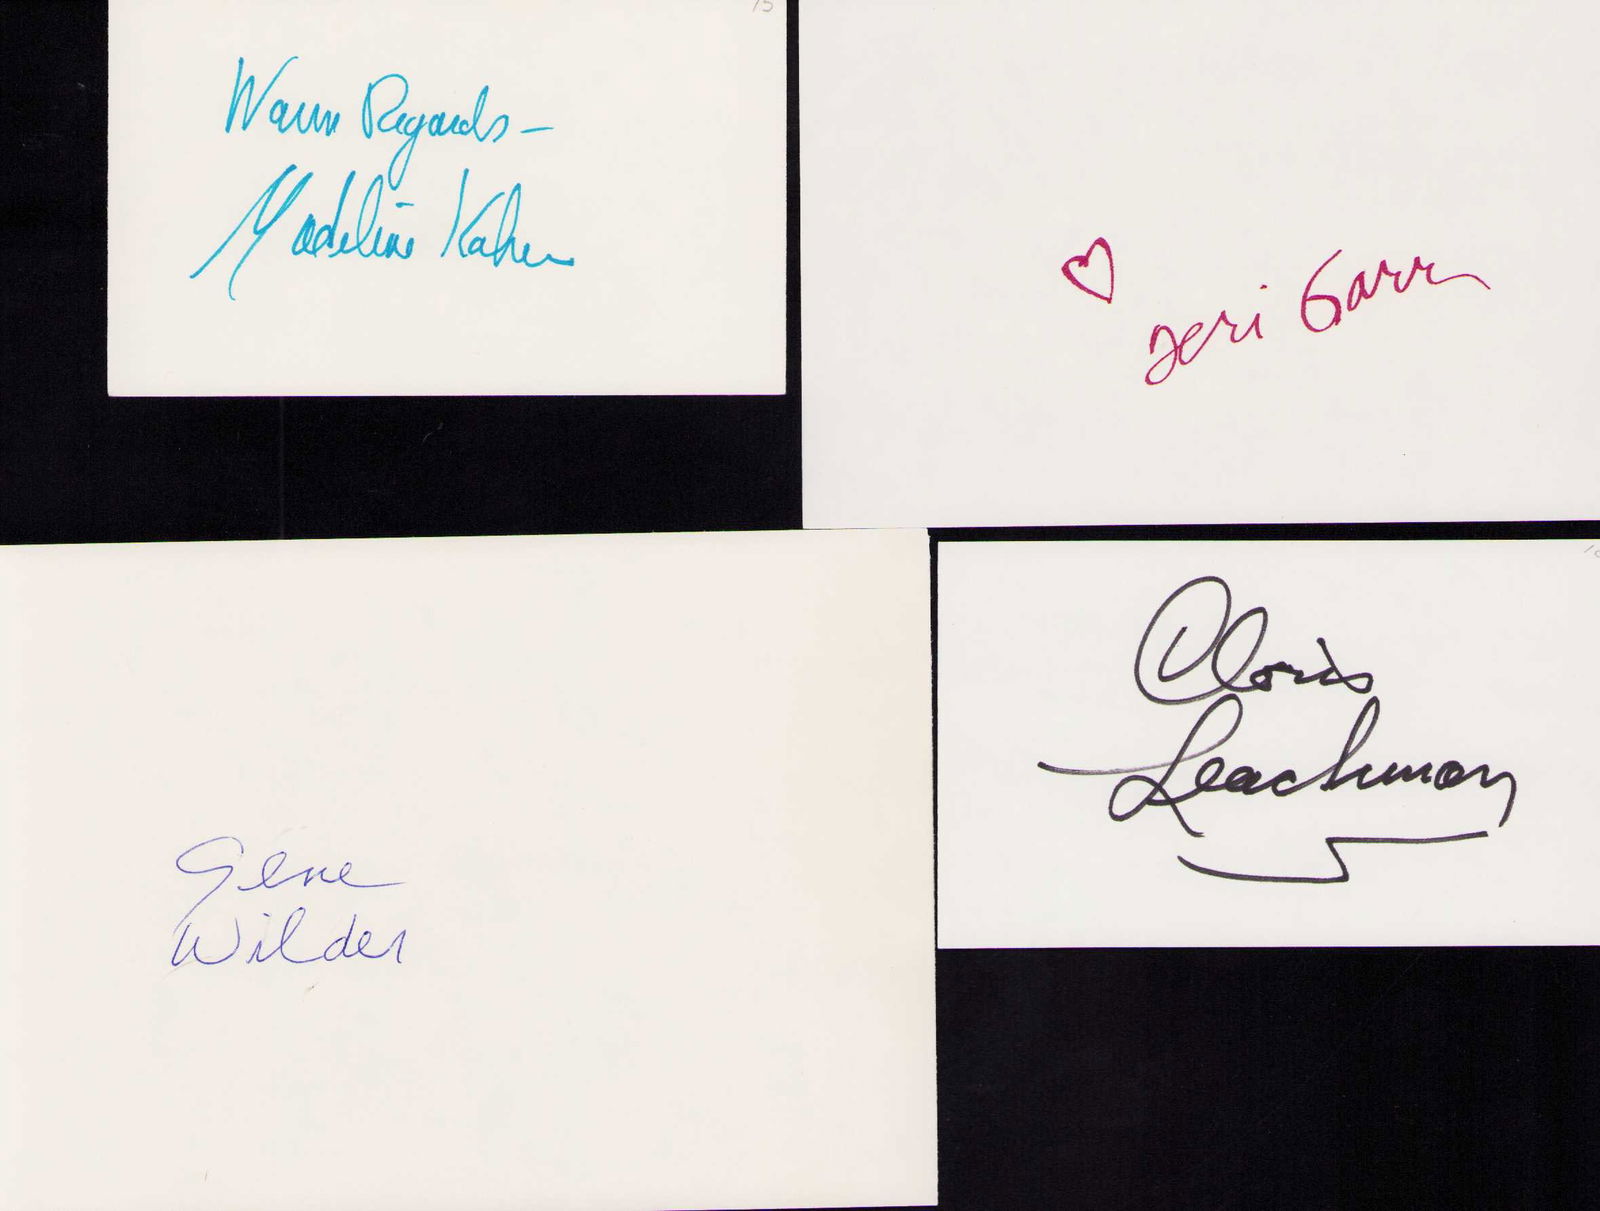 Warm Regards -
Madeline Kahn
15
Teri Garr
Gene
Wilder
Cloris
Leachman
10